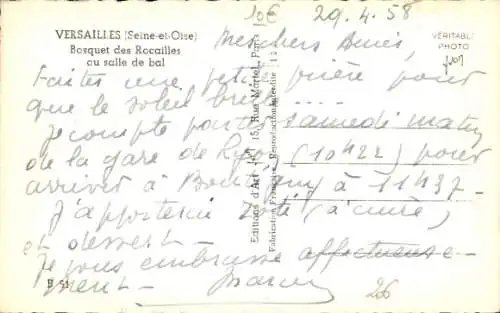 10€
29.4.58
VERSAILLES (Seine-et-Oise)
Bosquet des Rocailles
ou salle de bal
VÉRITABLE
PHOTO
Mes chers Amis,
Faites une petite prière pour
que le soleil brille ....
Je compte partir samedi matin
de la gare de Lyon (10h22) pour
arriver à à 11h37 -
J'apporterai rôti (à cuire)
et dessert -
Je vous embrasse affectueuse-
ment -
B 51
26
Editions d'Art 150 Rue Martel, Paris
Fabrication Française, Reproduction Interdite